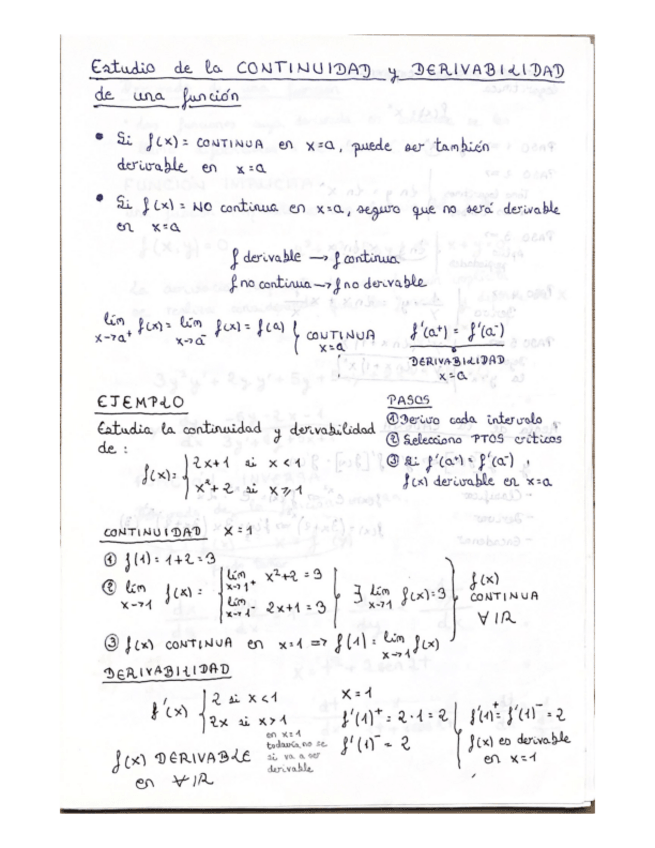 Estudio de la CONTINUIDAD y DERIVABILIDAD
de una función
• Si f(x) = CONTINUA en x=a, puede ser también
derivable en x=a
• Si f(x) = NO continua en x=a, seguro que no será derivable
en x=a
f derivable → f continua
f no continua → f no derivable
lím x→a⁺ f(x) = lím x→a⁻ f(x) = f(a) { CONTINUA x=a
f'(a⁺) = f'(a⁻)
DERIVABILIDAD
x=a
EJEMPLO
Estudia la continuidad y derivabilidad
de :
f(x) = { 2x+1 si x<1
x²+2 si x⩾1
PASOS
① Derivo cada intervalo
② Selecciono PTOS críticos
③ Si f'(a⁺) = f'(a⁻),
f(x) derivable en x=a
CONTINUIDAD x=1
① f(1) = 1+2 = 3
② lím x→1 f(x) = { lím x→1⁺ x²+2 = 3
lím x→1⁻ 2x+1 = 3 } ∃ lím x→1 f(x) = 3
③ f(x) CONTINUA en x=1 => f(1) = lím x→1 f(x)
} f(x)
CONTINUA
∀ IR
DERIVABILIDAD
f'(x) { 2 si x<1
2x si x>1
en x=1
todavía no se
si va a ser
derivable
f(x) DERIVABLE
en ∀ IR
x=1
f'(1)⁺ = 2·1 = 2
f'(1)⁻ = 2
{ f'(1)⁺ = f'(1)⁻ = 2
f(x) es derivable
en x=1